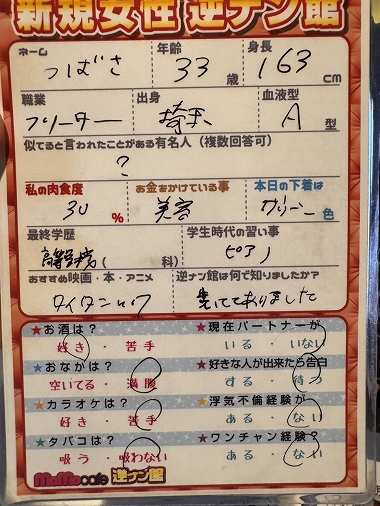 新規女性 逆ナン館
ネーム 年齢 身長
つばさ 33歳 163cm
職業 出身 血液型
フリーター 埼玉 A型
似てると言われたことがある有名人（複数回答可）
?
私の肉食度 お金をかけている事 本日の下着は
30% 美容 色
最終学歴 学生時代の習い事
高等学校( 科) ピアノ
おすすめ映画・本・アニメ 逆ナン館は何で知りましたか?
タイタニック
★お酒は? ★現在パートナーが
好き・苦手 いる・いない
★おなかは? ★好きな人が出来たら告白
空いてる・満腹 する・待つ
★カラオケは? ★浮気不倫経験が
好き・苦手 ある・ない
★タバコは? ★ワンチャン経験?
吸う・吸わない ある・ない
MoMocafe 逆ナン館